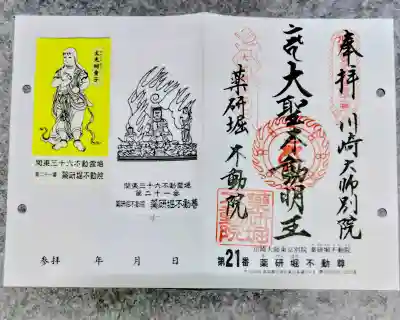 奉拝
川崎大師別院
大聖不動明王
薬研堀
不動院
川崎大師東京別院 薬研堀不動院
第21番 薬研堀不動尊
関東三十六不動霊場
第二十一番 薬研堀不動院
関東三十六不動霊場
第二十一番
薬研堀不動院 薬研堀不動尊
参拝 年 月 日